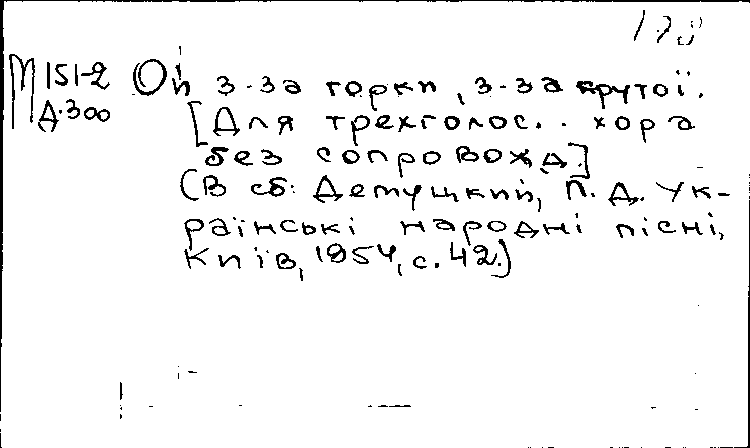 178
М 151-2 Ой з-за горки, з-за крутої.
Д.300 [Для трехголос. хора
без сопровожд.]
(В сб: Демуцкий, П. Д. Ук-
раїнські народні пісні,
Київ, 1954, с. 42.)